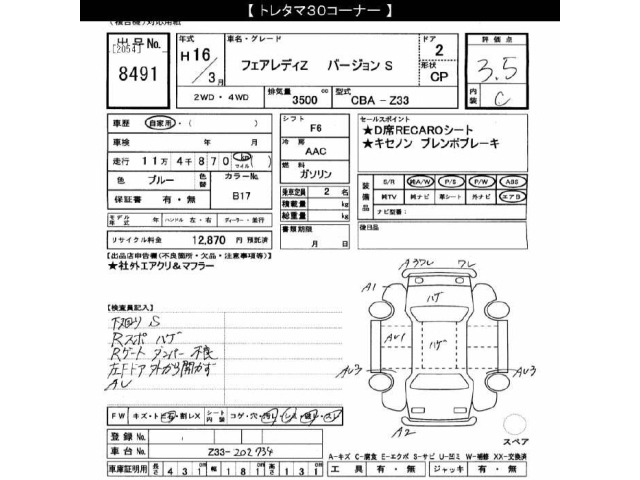 【 トレタマ30コーナー 】
(複合機)対応用紙
出品No.
[2054]
8491
年式
H 16
／3月
車名・グレード
フェアレディZ バージョン S
ドア
2
形状
CP
評価点
3.5
内装
C
2WD・4WD
排気量 3500 cc
型式 CBA － Z33
車歴 自家用・( )
車検 年 月
走行 11万 4千 870 km マイル
色 ブルー 色替
カラーNo. B17
保証書 有・無
モデル年式 年 ハンドル 左・右 ディーラー・並行
リサイクル料金 12,870 円 預託済
シフト
F6
冷房
AAC
燃料
ガソリン
乗車定員 2 名
積載量 kg
総重量 kg
書類期限
月 日
セールスポイント
★D席RECAROシート
★キセノン ブレンボブレーキ
装備品
S/R 純A/W P/S P/W ABS
純TV 純ナビ 革シート 外ナビ エアB
ナビ型番:
後日品
【出品店申告欄(不良箇所・欠品・注意事項等)】
★社外エアクリ&マフラー
【検査員記入】
下回り S
Rスポ ハゲ
Rゲート ダンパー 不良
左Fドア 外から開かず
AU
A3ワレ ワレ
A1
ハゲ
AU1
ハゲ
AU3
AU3
A2
スペア
FW キズ・トビ石・割レX シート内装 コゲ・穴・汚レ・シミ・破レ・スレ
登録No.
車台No. Z33-202734
車庫証明用 長さ 431cm 幅 181cm 高さ 131cm
A-キズ C-腐食 E-エクボ S-サビ U-凹ミ W-補修 XX-交換済
工具 有・無 ジャッキ 有・無